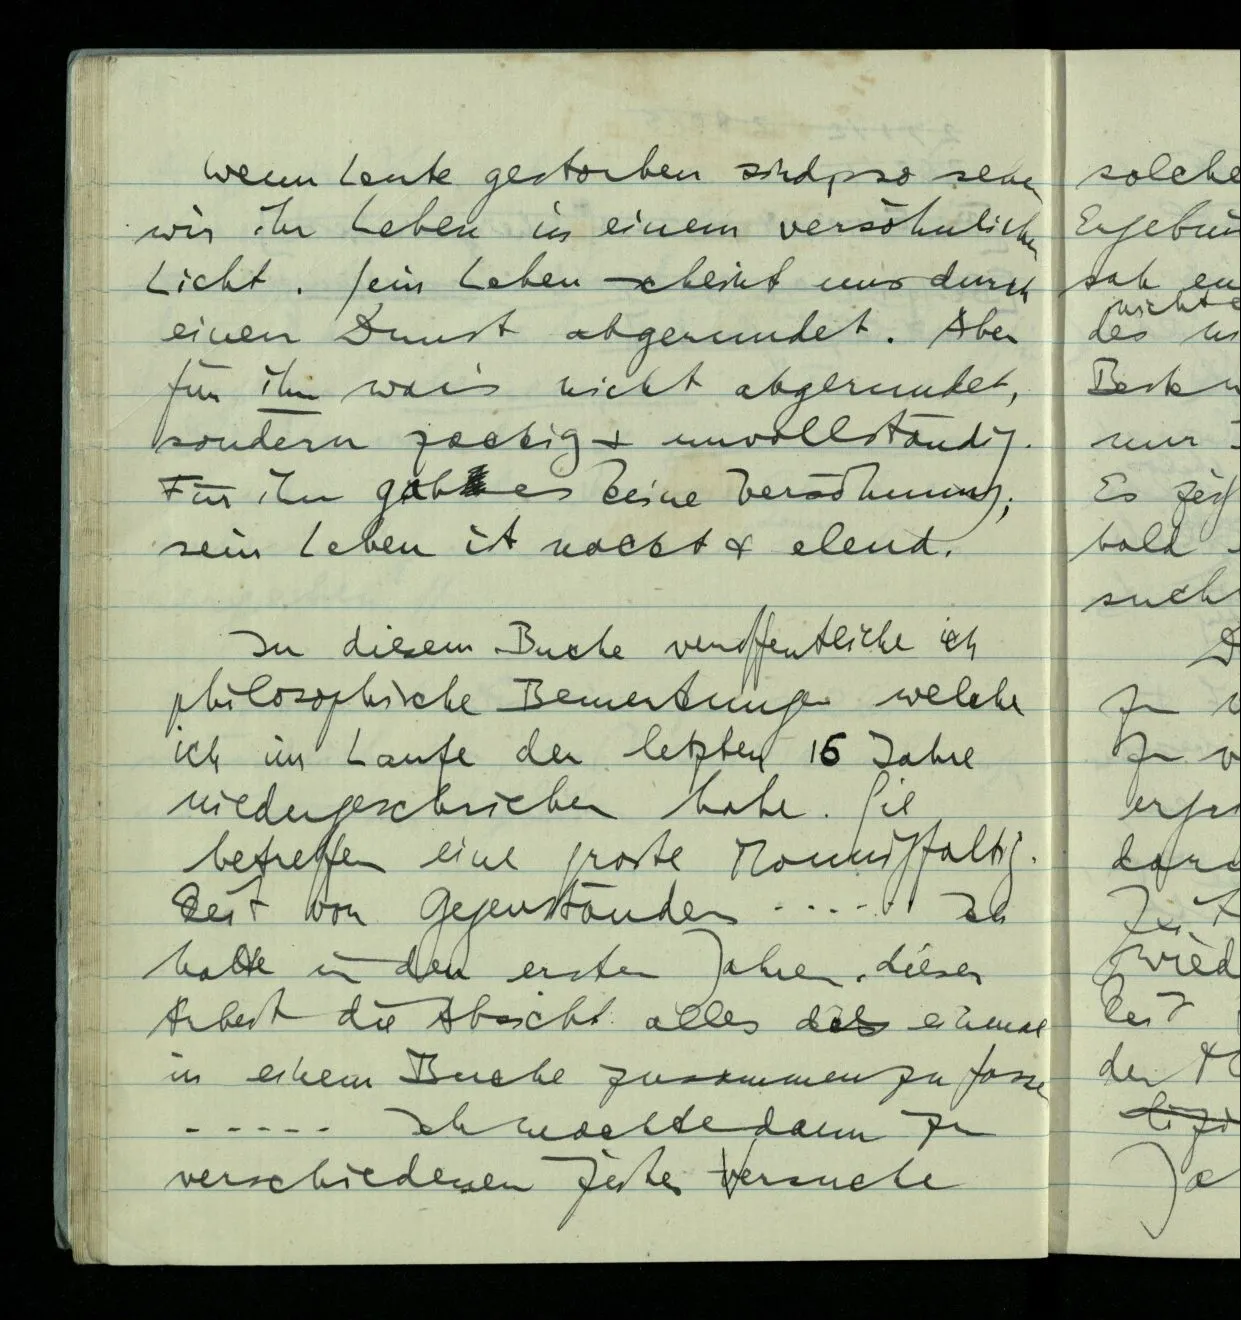 Wenn Leute gestorben sind, so sehen
wir ihr Leben in einem versöhnlichen
Licht. Sein Leben scheint uns durch
einen Dunst abgerundet. Aber
für ihn war's nicht abgerundet,
sondern zackig & unvollständig.
Für ihn gab es keine Versöhnung;
sein Leben ist nackt & elend.
In diesem Buche veröffentliche ich
philosophische Bemerkungen welche
ich im Laufe der letzten 16 Jahre
niedergeschrieben habe. Sie
betreffen eine große Mannigfaltig-
keit von Gegenständen ..... Ich
hatte in den ersten Jahren dieser
Arbeit die Absicht alles das einmal
in einem Buche zusammenzufassen
----- Ich machte dann zu
verschiedenen Zeiten Versuche
solche
des
nur
Es
bald
such
zu
zu
der